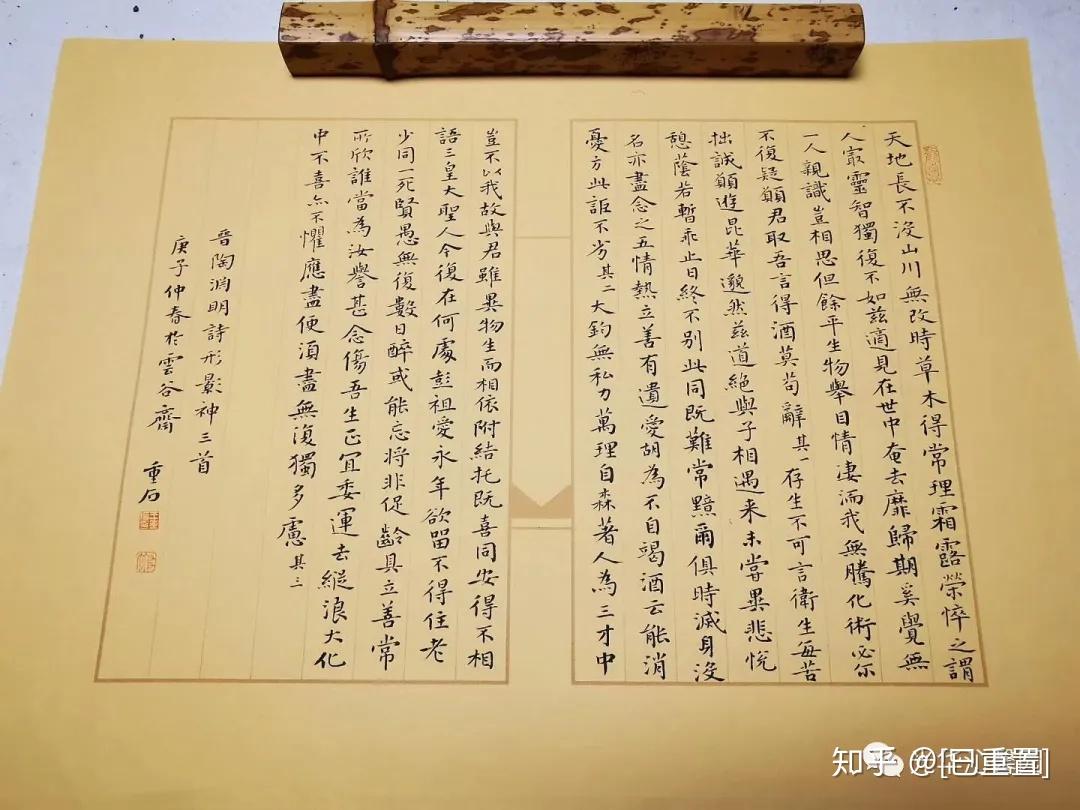 天地長不沒山川無改時草木得常理霜露榮悴之謂
人最靈智獨復不如茲適見在世中奄去靡歸期奚覺無
一人親識豈相思但餘平生物舉目情淒洏我無騰化術必尓
不復疑願君取吾言得酒莫苟辭其一存生不可言衛生每苦
拙誠願遊昆華邈然茲道絕與子相遇来未嘗異悲悅
憩蔭若暫乖止日終不別此同既難常黯爾俱時滅身沒
名亦盡念之五情熱立善有遺愛胡為不自竭酒云能消
憂方此詎不劣其二大鈞無私力萬理自森著人為三才中
豈不以我故與君雖異物生而相依附結托既喜同安得不相
語三皇大聖人今復在何處彭祖愛永年欲留不得住老
少同一死賢愚無復數日醉或能忘將非促齡具立善常
所欣誰當為汝譽甚念傷吾生正宜委運去縱浪大化
中不喜亦不懼應盡便須盡無復獨多慮其三
晋陶淵明詩形影神三首
庚子仲春於雲谷齋 重石
知乎 @[已重置]